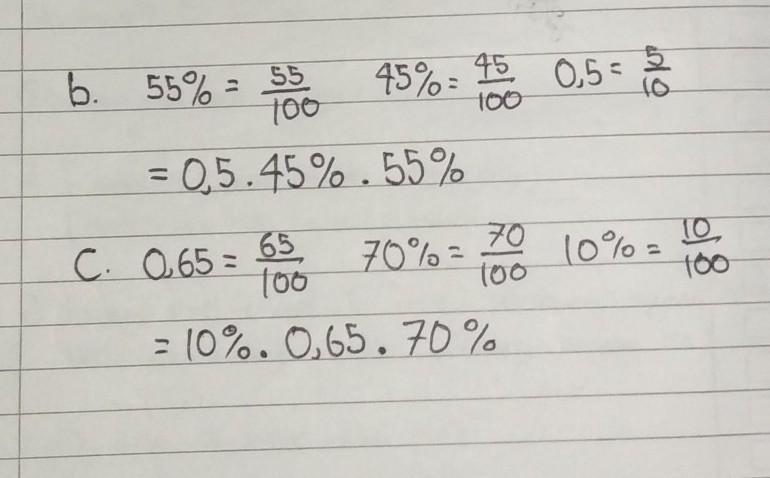 b. 55% = 55/100 45% = 45/100 0,5 = 5/10
= 0,5 . 45% . 55%
C. 0,65 = 65/100 70% = 70/100 10% = 10/100
= 10% . 0,65 . 70%